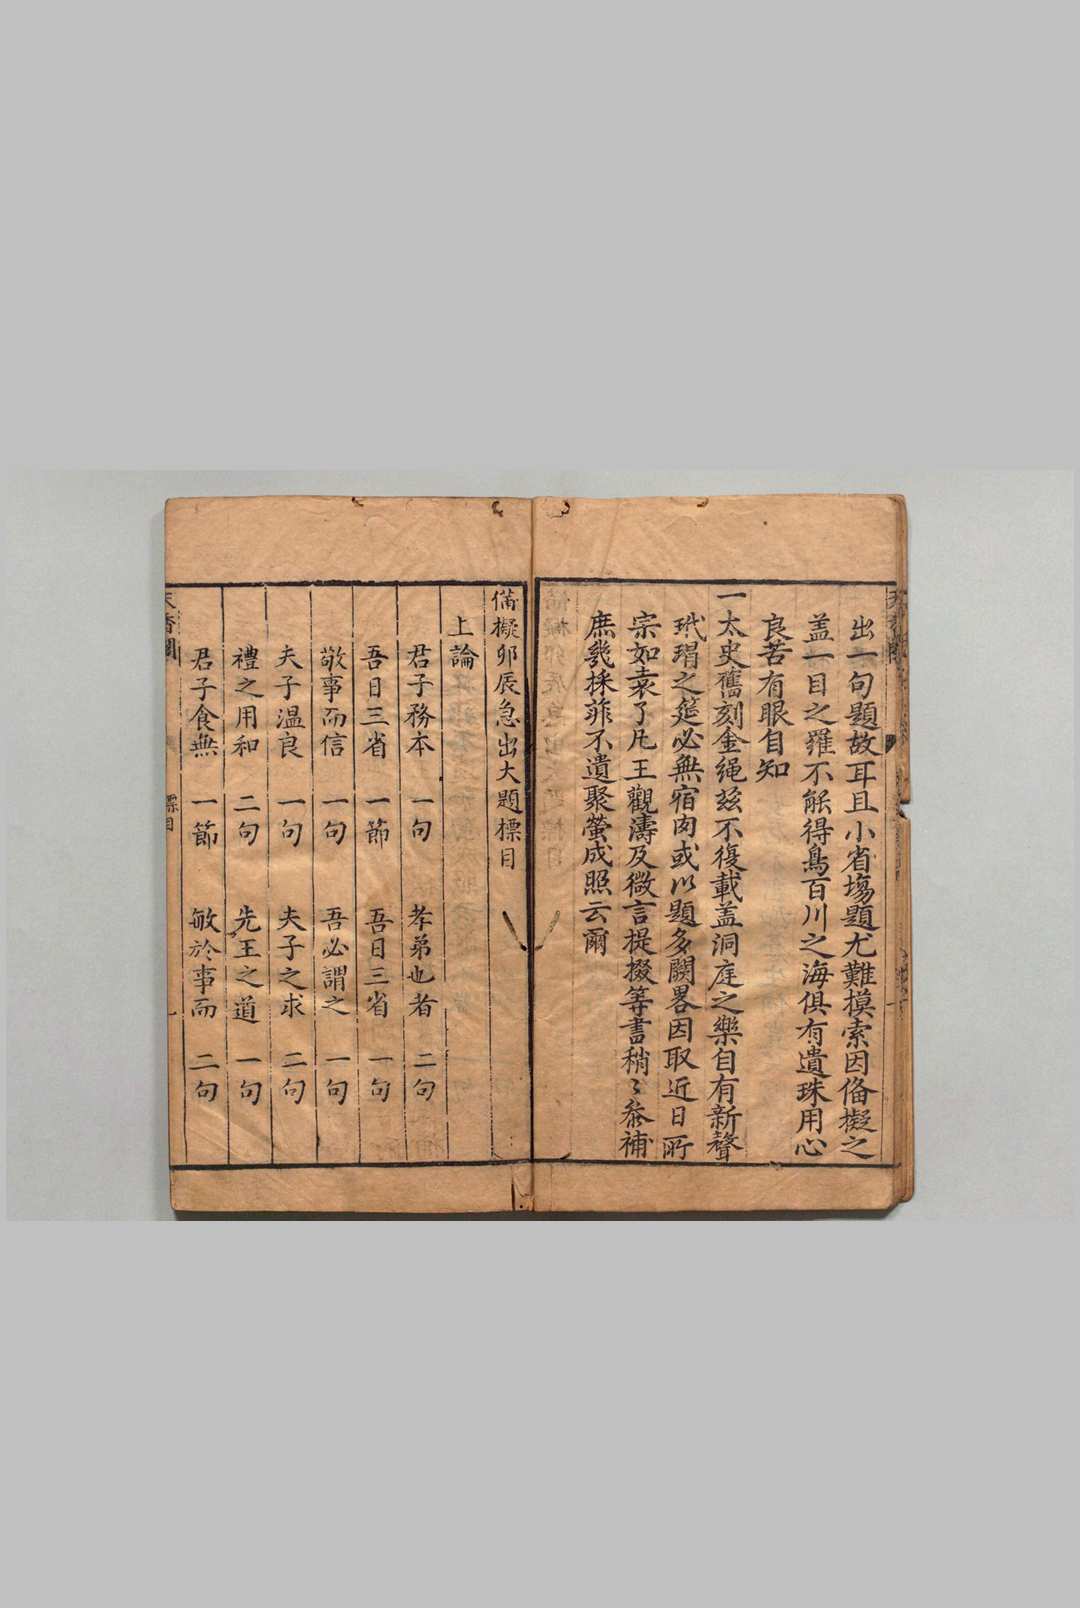 出一句題故耳且小省塲題尤難摸索因俻擬之
盖一目之羅不能得鳥百川之海俱有遺珠用心
良苦有眼自知
一太史舊刻金繩兹不復載盖洞庭之樂自有新聲
玳瑁之筵必無宿肉或以題多闕畧因取近日所
宗如袁了凡王觀濤及微言提掇等書稍〻叅補
庶幾採菲不遺聚螢成照云爾
俻擬卯辰急出大題標目
上論
君子務本 一句 孝弟也者 二句
吾日三省 一節 吾日三省 一句
敬事而信 一句 吾必謂之 一句
夫子温良 一句 夫子之求 二句
禮之用和 二句 先王之道 一句
君子食無 一節 敏於事而 二句
天香閣
標目
一